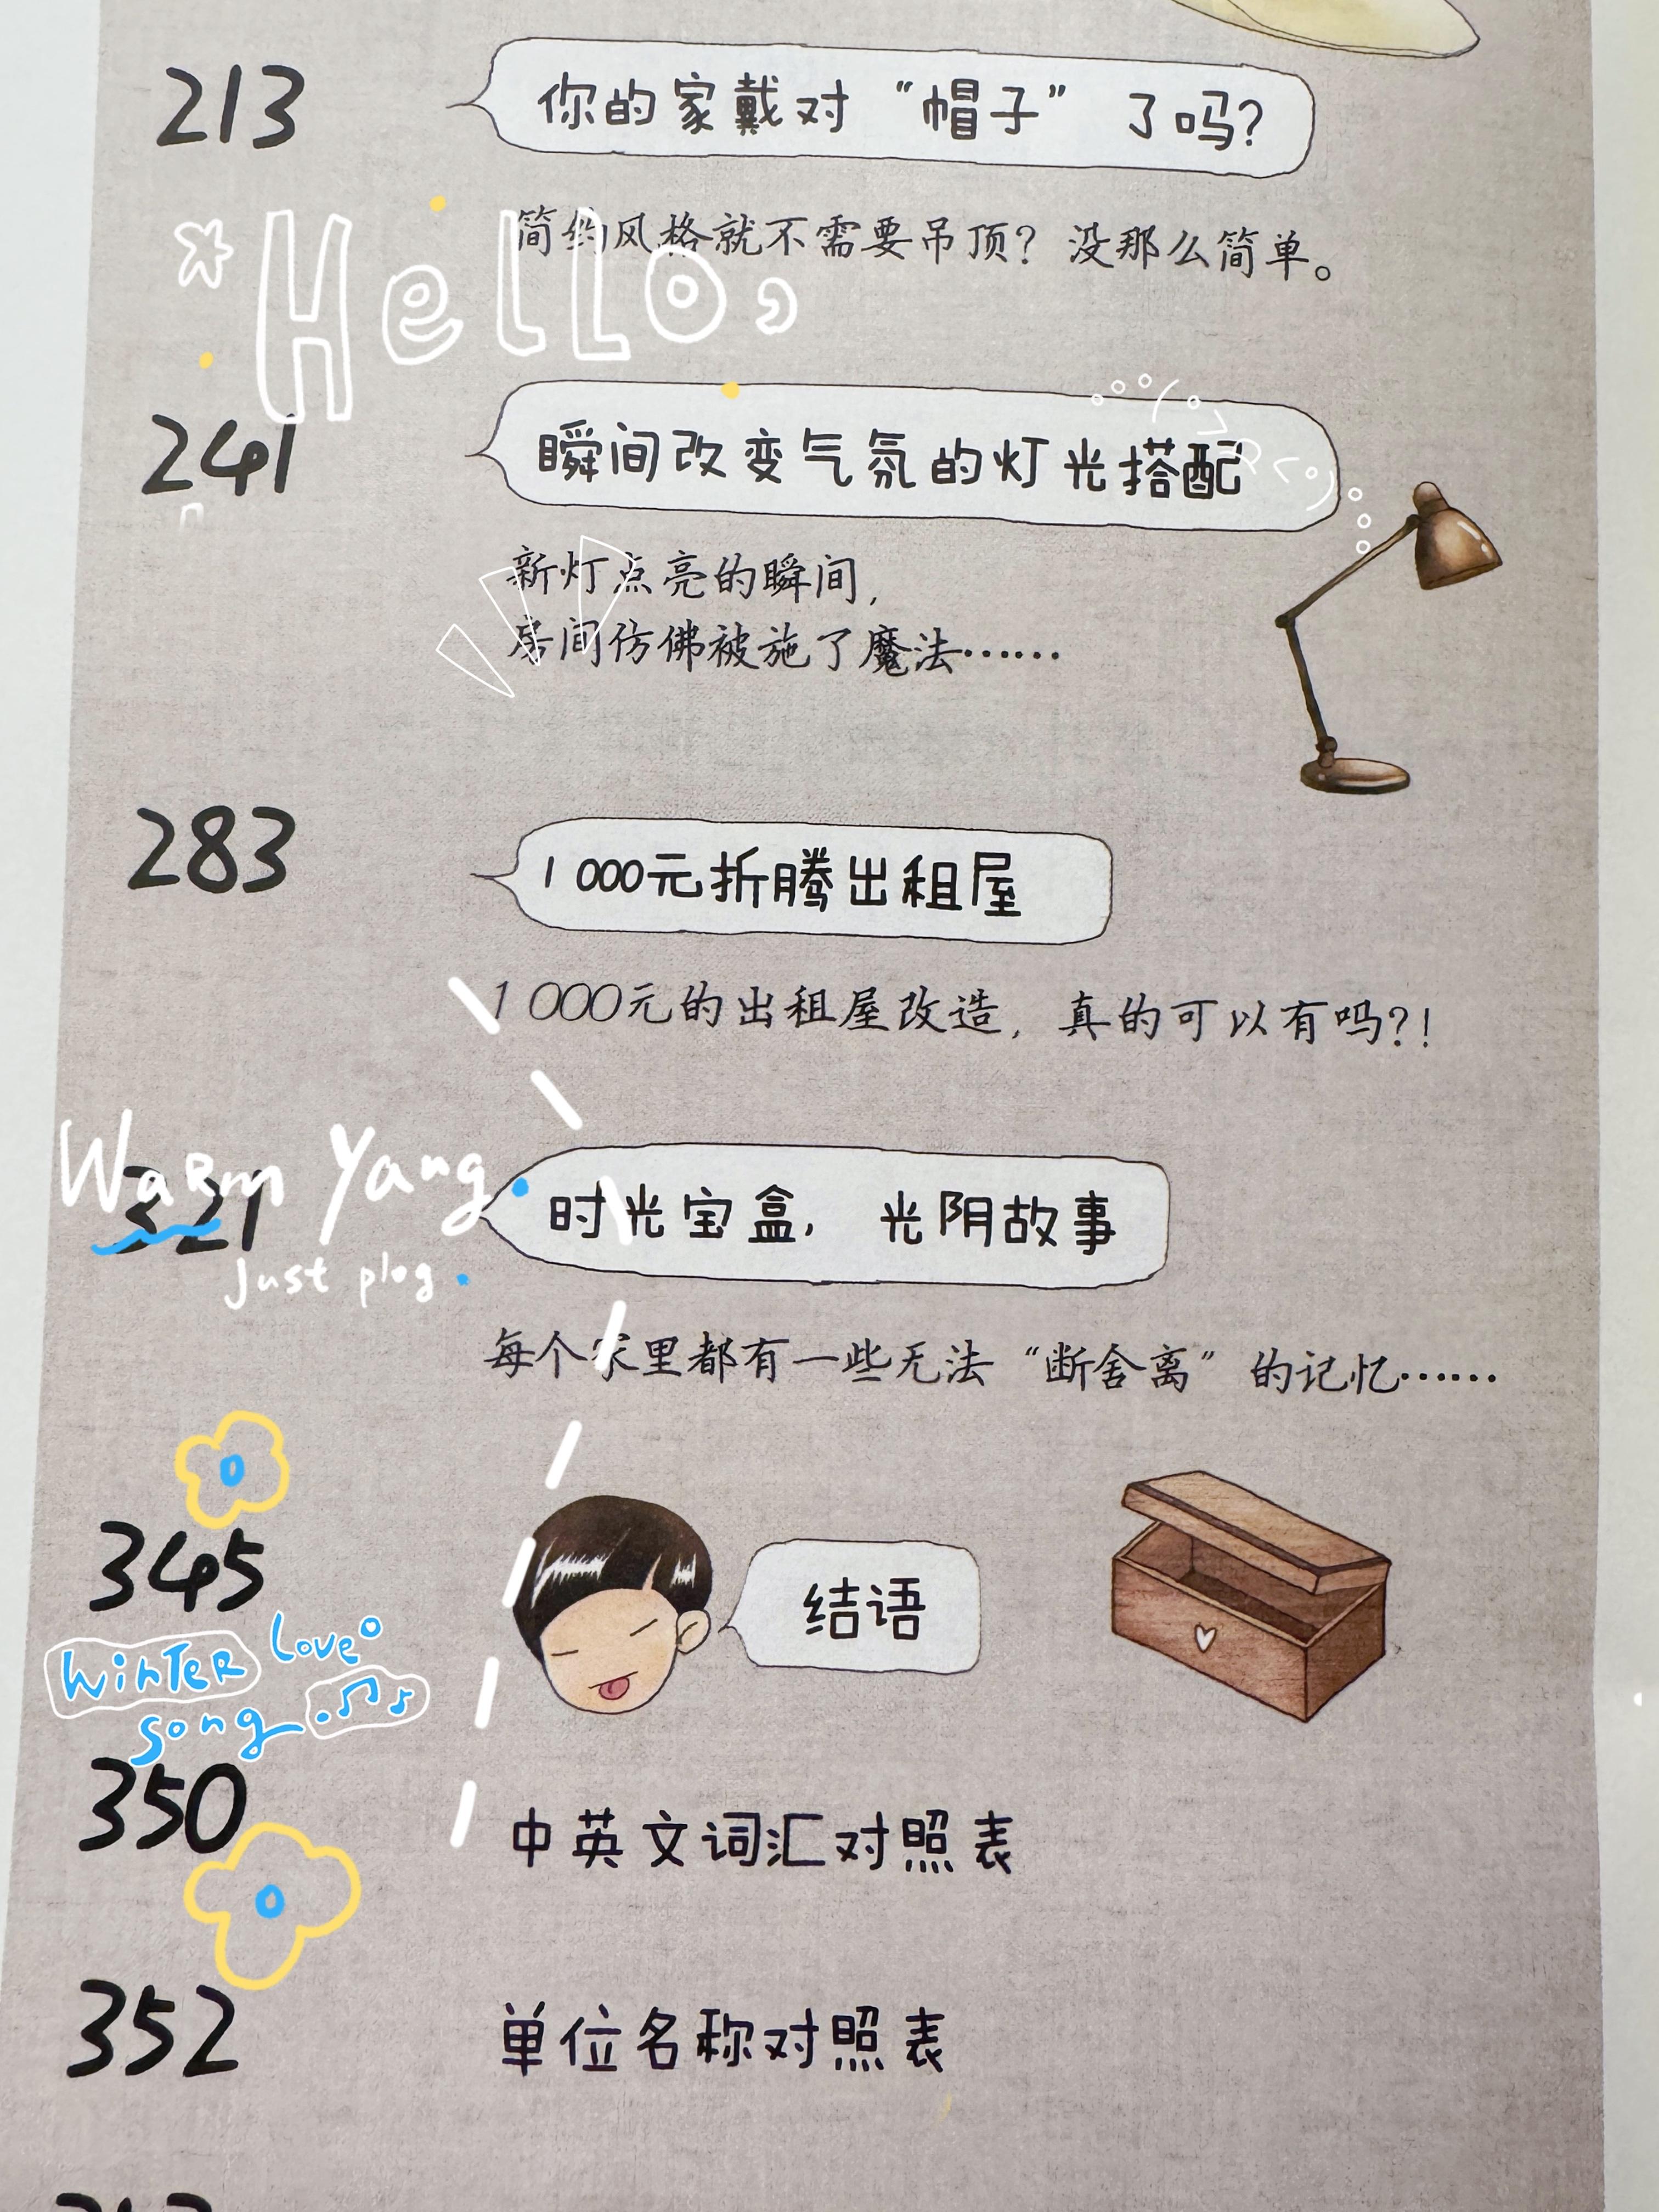 213
你的家戴对“帽子”了吗？
简约风格就不需要吊顶？没那么简单。
Hello,
241
瞬间改变气氛的灯光搭配
新灯点亮的瞬间，
房间仿佛被施了魔法……
283
1 000元折腾出租屋
1 000元的出租屋改造，真的可以有吗？！
Warm Yang.
321
时光宝盒，光阴故事
Just plog.
每个家里都有一些无法“断舍离”的记忆……
345
结语
Winter Love
song
350
中英文词汇对照表
352
单位名称对照表